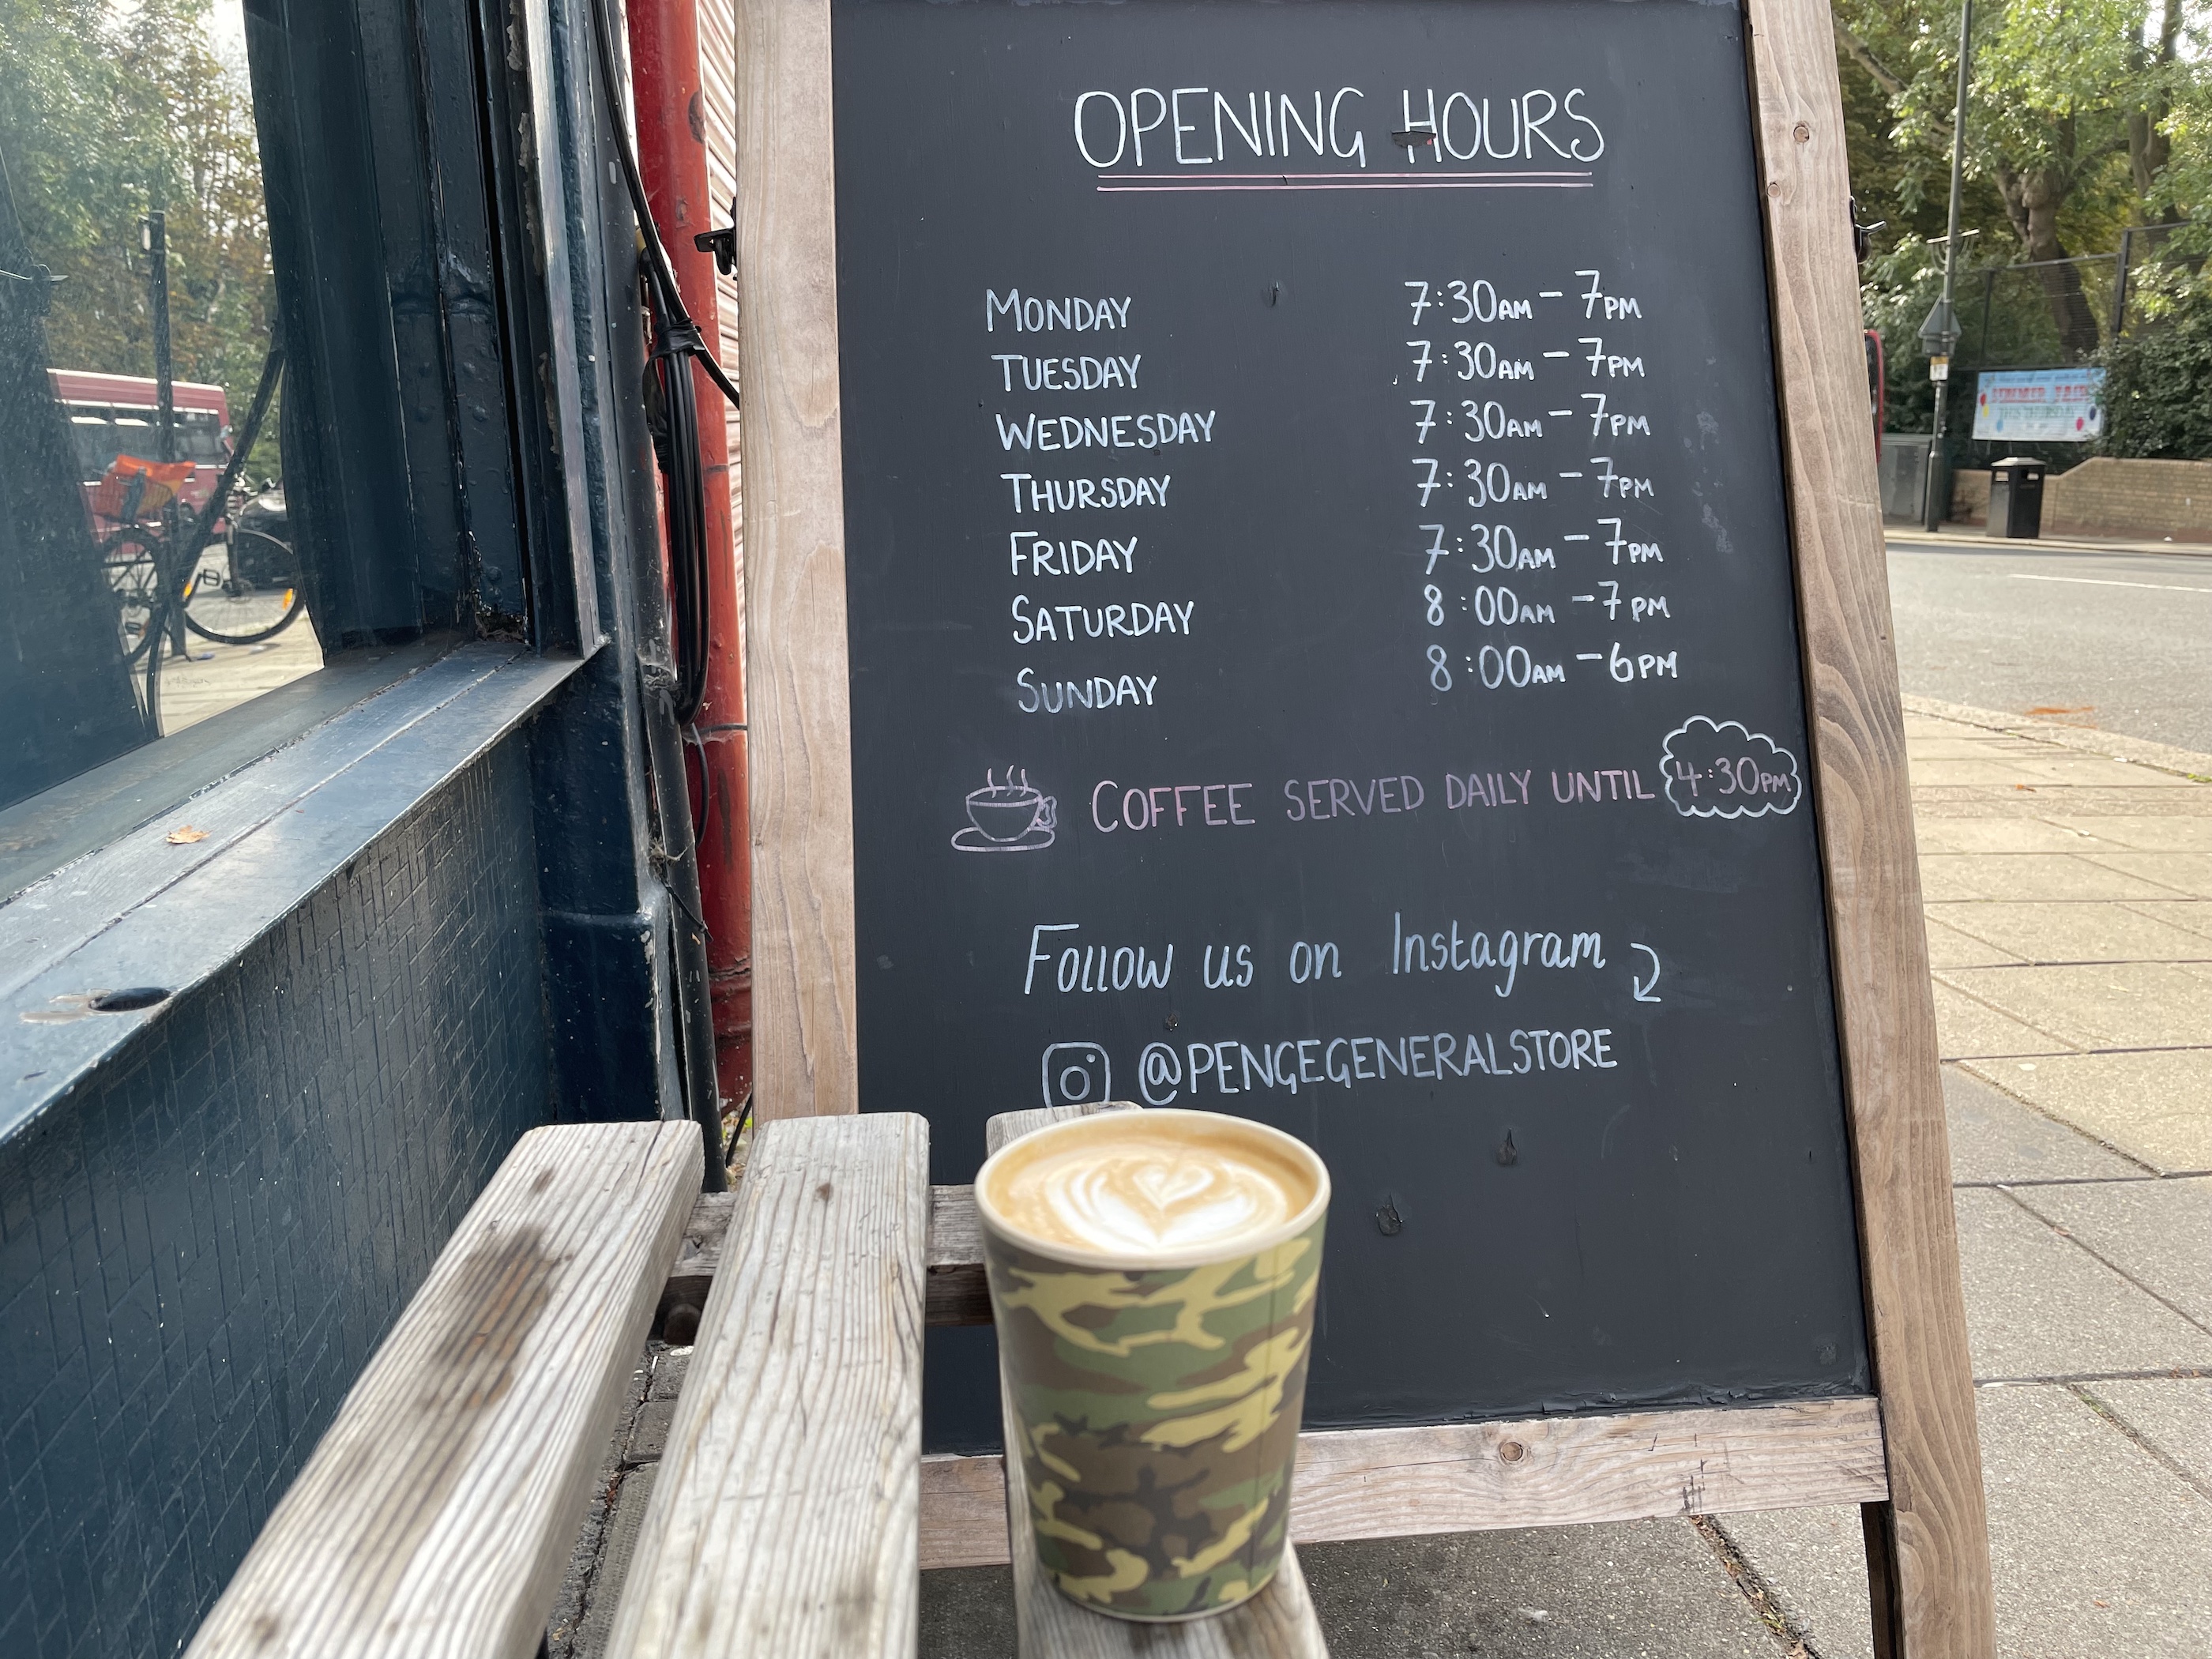 OPENING HOURS
MONDAY 7:30AM - 7PM
TUESDAY 7:30AM - 7PM
WEDNESDAY 7:30AM - 7PM
THURSDAY 7:30AM - 7PM
FRIDAY 7:30AM - 7PM
SATURDAY 8:00AM - 7PM
SUNDAY 8:00AM - 6PM
COFFEE SERVED DAILY UNTIL 4:30PM
Follow us on Instagram
@PENGEGENERALSTORE